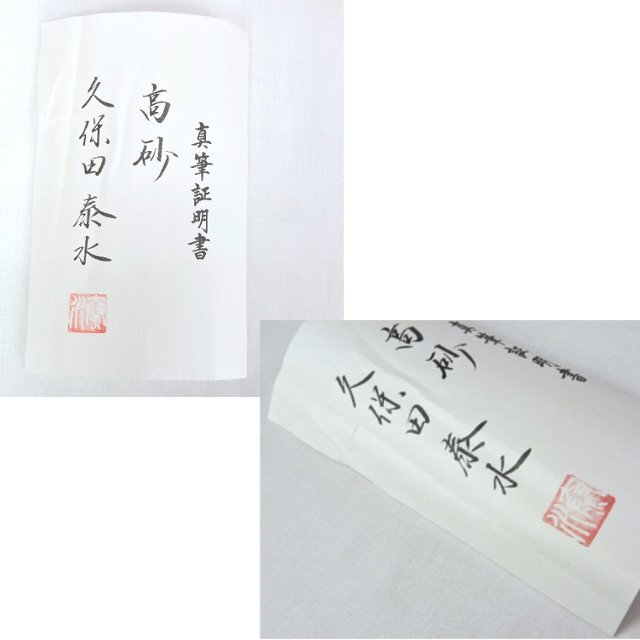 真筆証明書
高砂
久保田泰水
泰水
真筆証明書
高砂
久保田泰水
泰水